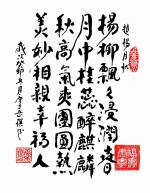 楊柳飄々浸潤春
月中桂蕊醉麒麟
秋高氣爽團圓熟
美妙相親幸福人
歲次癸卯